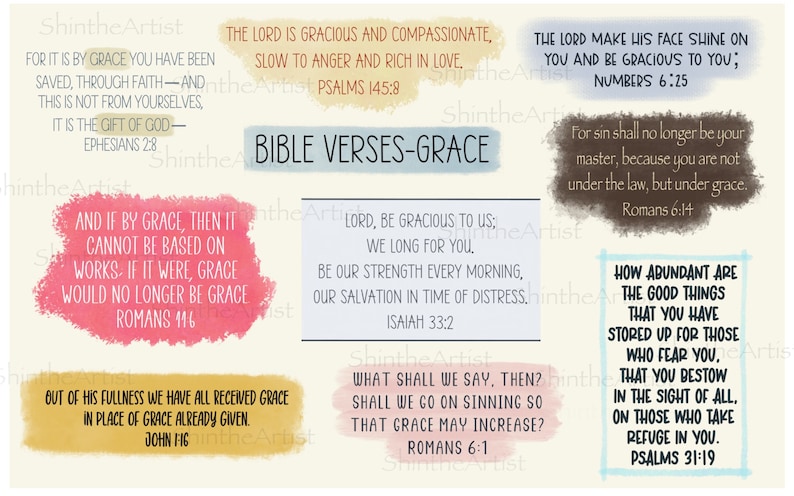 FOR IT IS BY GRACE YOU HAVE BEEN
SAVED, THROUGH FAITH — AND
THIS IS NOT FROM YOURSELVES,
IT IS THE GIFT OF GOD —
EPHESIANS 2:8
THE LORD IS GRACIOUS AND COMPASSIONATE,
SLOW TO ANGER AND RICH IN LOVE.
PSALMS 145:8
THE LORD MAKE HIS FACE SHINE ON
YOU AND BE GRACIOUS TO YOU;
NUMBERS 6:25
BIBLE VERSES-GRACE
For sin shall no longer be your
master, because you are not
under the law, but under grace.
Romans 6:14
AND IF BY GRACE, THEN IT
CANNOT BE BASED ON
WORKS; IF IT WERE, GRACE
WOULD NO LONGER BE GRACE
ROMANS 11:6
LORD, BE GRACIOUS TO US;
WE LONG FOR YOU.
BE OUR STRENGTH EVERY MORNING,
OUR SALVATION IN TIME OF DISTRESS.
ISAIAH 33:2
HOW ABUNDANT ARE
THE GOOD THINGS
THAT YOU HAVE
STORED UP FOR THOSE
WHO FEAR YOU,
THAT YOU BESTOW
IN THE SIGHT OF ALL,
ON THOSE WHO TAKE
REFUGE IN YOU.
PSALMS 31:19
OUT OF HIS FULLNESS WE HAVE ALL RECEIVED GRACE
IN PLACE OF GRACE ALREADY GIVEN.
JOHN 1:16
WHAT SHALL WE SAY, THEN?
SHALL WE GO ON SINNING SO
THAT GRACE MAY INCREASE?
ROMANS 6:1
ShintheArtist